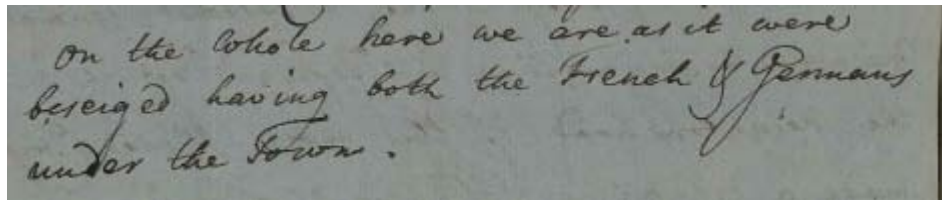 on the whole here we are as it were
beseiged having both the French & Germans
under the Town.